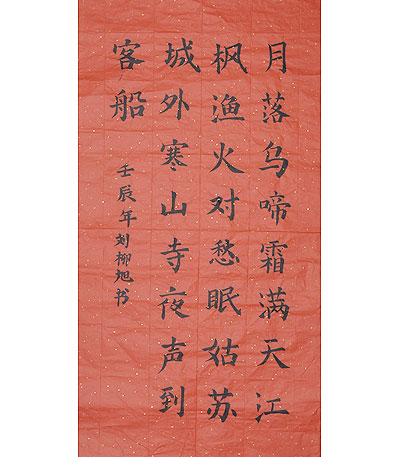 月落乌啼霜满天江
枫渔火对愁眠姑苏
城外寒山寺夜声到
客船
壬辰年刘柳旭书